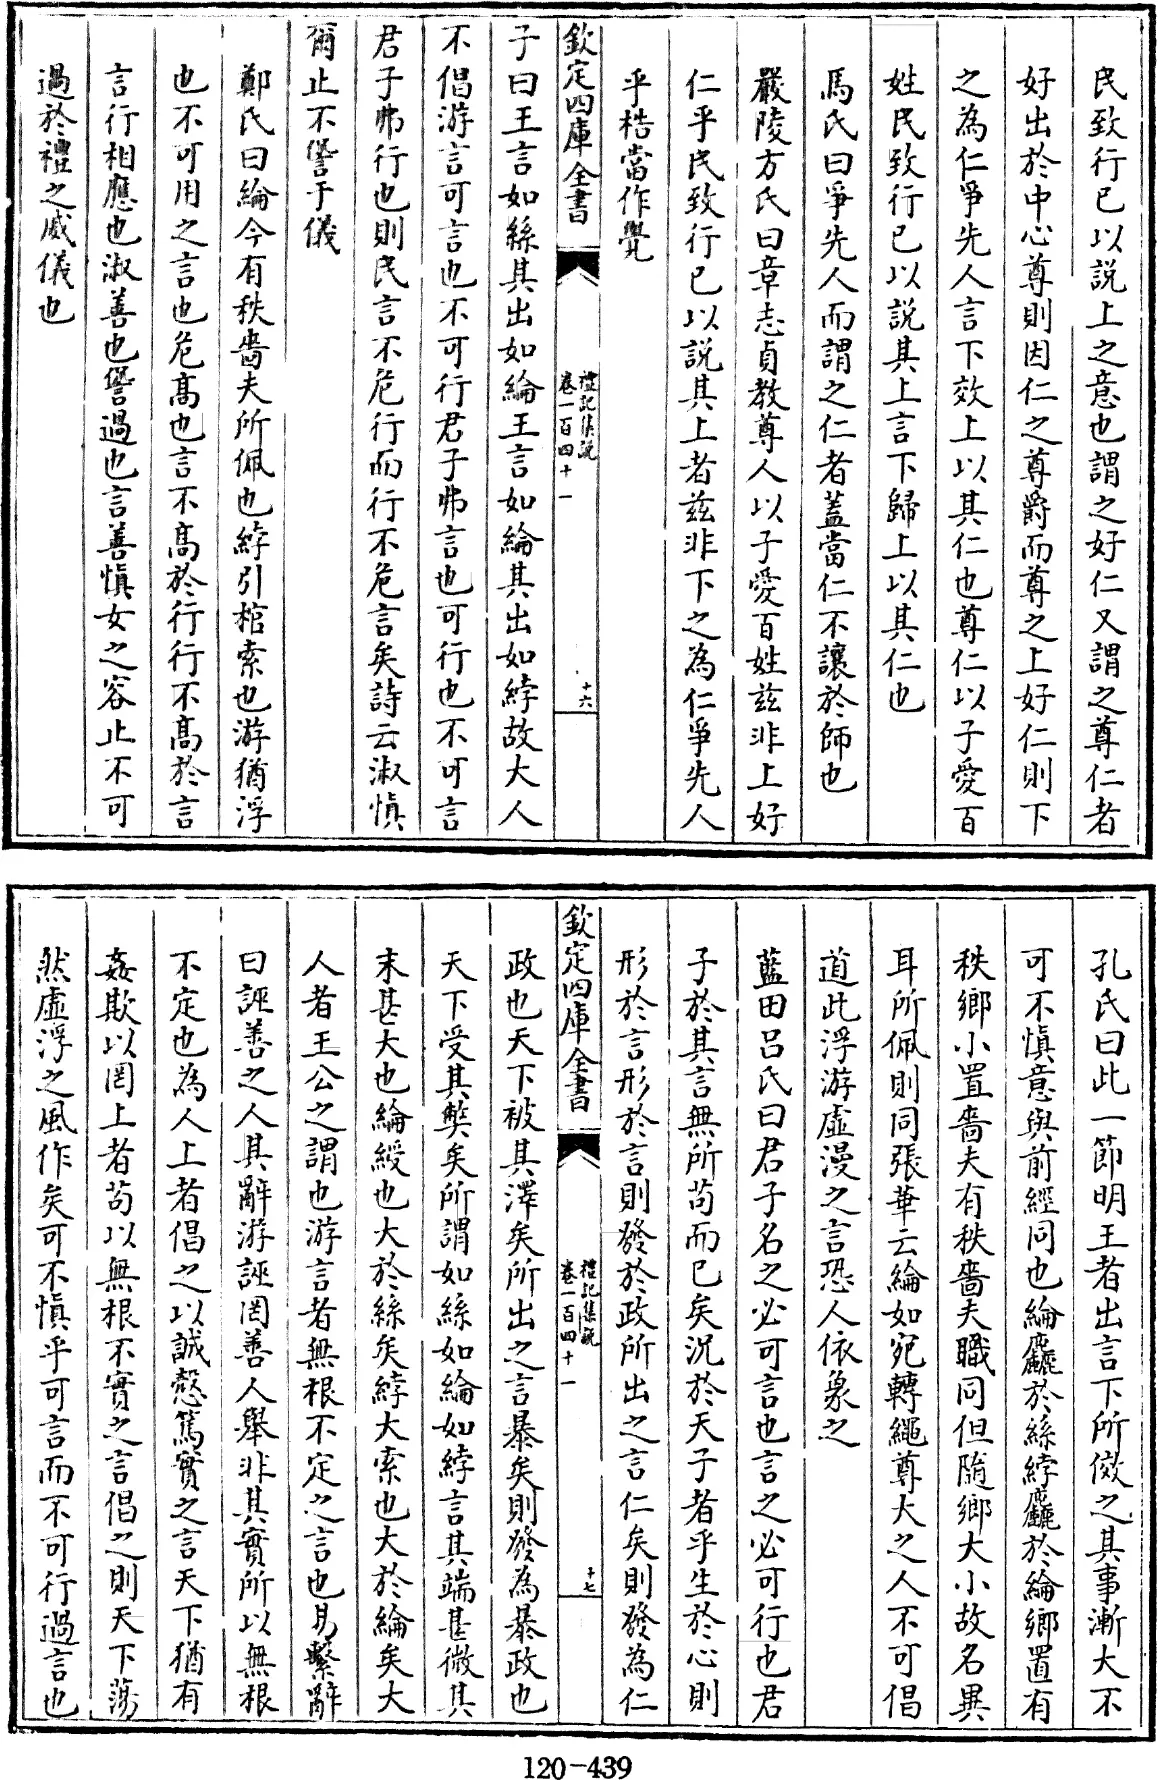 民致行已以説上之意也謂之好仁又謂之尊仁者
好出於中心尊則因仁之尊爵而尊之上好仁則下
之為仁爭先人言下效上以其仁也尊仁以子愛百
姓民致行已以説其上言下歸上以其仁也
馬氏曰爭先人而謂之仁者蓋當仁不讓於師也
嚴陵方氏曰章志貞教尊人以子愛百姓兹非上好
仁乎民致行已以説其上者兹非下之為仁爭先人
乎梏當作覺
欽定四庫全書
禮記集説
卷一百四十一
十六
子曰王言如絲其出如綸王言如綸其出如綍故大人
不倡游言可言也不可行君子弗言也可行也不可言
君子弗行也則民言不危行而行不危言矣詩云淑慎
爾止不諐于儀
鄭氏曰綸今有秩嗇夫所佩也綍引棺索也游猶浮
也不可用之言也危髙也言不髙於行行不髙於言
言行相應也淑善也諐過也言善慎女之容止不可
過於禮之威儀也
孔氏曰此一節明王者出言下所傚之其事漸大不
可不慎意與前經同也綸麤於絲綍麤於綸鄉置有
秩鄉小置嗇夫有秩嗇夫職同但隨鄉大小故名異
耳所佩則同張華云綸如宛轉繩尊大之人不可倡
道此浮游虛漫之言恐人依象之
藍田吕氏曰君子名之必可言也言之必可行也君
子於其言無所苟而已矣況於天子者乎生於心則
形於言形於言則發於政所出之言仁矣則發為仁
欽定四庫全書
禮記集説
卷一百四十一
十七
政也天下被其澤矣所出之言暴矣則發為暴政也
天下受其弊矣所謂如絲如綸如綍言其端甚微其
末甚大也綸綬也大於絲矣綍大索也大於綸矣大
人者王公之謂也游言者無根不定之言也易繫辭
曰誣善之人其辭游誣罔善人舉非其實所以無根
不定也為人上者倡之以誠慤篤實之言天下猶有
姦欺以罔上者苟以無根不實之言倡之則天下蕩
然虛浮之風作矣可不慎乎可言而不可行過言也
120-439